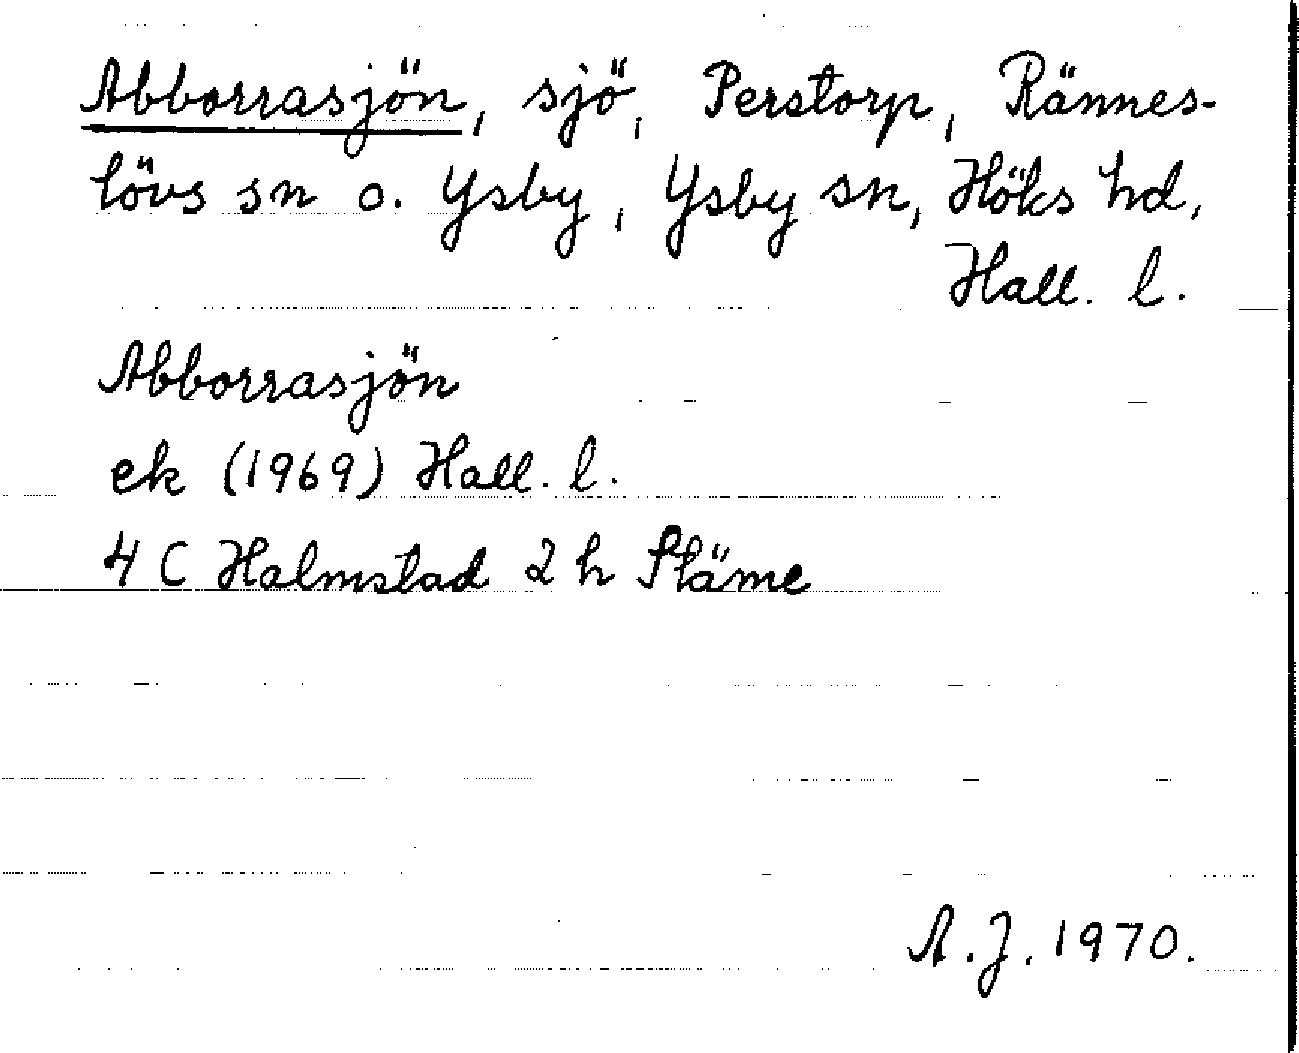 Abborrasjön, sjö, Perstorp, Rännes-
lövs sn o. Ysby, Ysby sn, Höks hd,
Hall. l.
Abborrasjön
ek (1969) Hall. l.
4 C Halmstad 2 h Fläme
A.J. 1970.